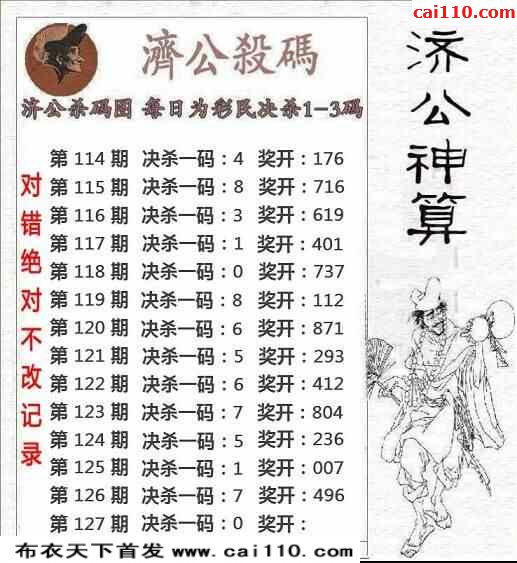 cai110.com
濟公殺碼
济公杀码图 每日为彩民决杀1-3码
济公神算
对错绝对不改记录
第 114 期 决杀一码:4 奖开:176
第 115 期 决杀一码:8 奖开:716
第 116 期 决杀一码:3 奖开:619
第 117 期 决杀一码:1 奖开:401
第 118 期 决杀一码:0 奖开:737
第 119 期 决杀一码:8 奖开:112
第 120 期 决杀一码:6 奖开:871
第 121 期 决杀一码:5 奖开:293
第 122 期 决杀一码:6 奖开:412
第 123 期 决杀一码:7 奖开:804
第 124 期 决杀一码:5 奖开:236
第 125 期 决杀一码:1 奖开:007
第 126 期 决杀一码:7 奖开:496
第 127 期 决杀一码:0 奖开:
布衣天下首发 www.cai110.com